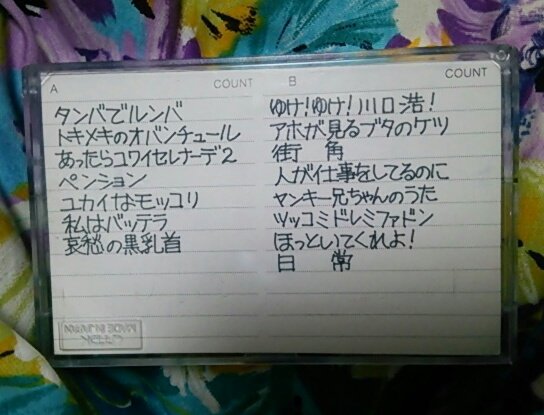 A COUNT
タンバでルンバ
トキメキのオバンチュール
あったらコワイセレナーデ2
ペンション
ユカイなモッコリ
私はバッテラ
哀愁の黒乳首
B COUNT
ゆけ!ゆけ!川口浩!
アホが見るブタのケツ
街 角
人が仕事をしてるのに
ヤンキー兄ちゃんのうた
ツッコミドレミファドン
ほっといてくれよ!
日 常
MADE IN JAPAN